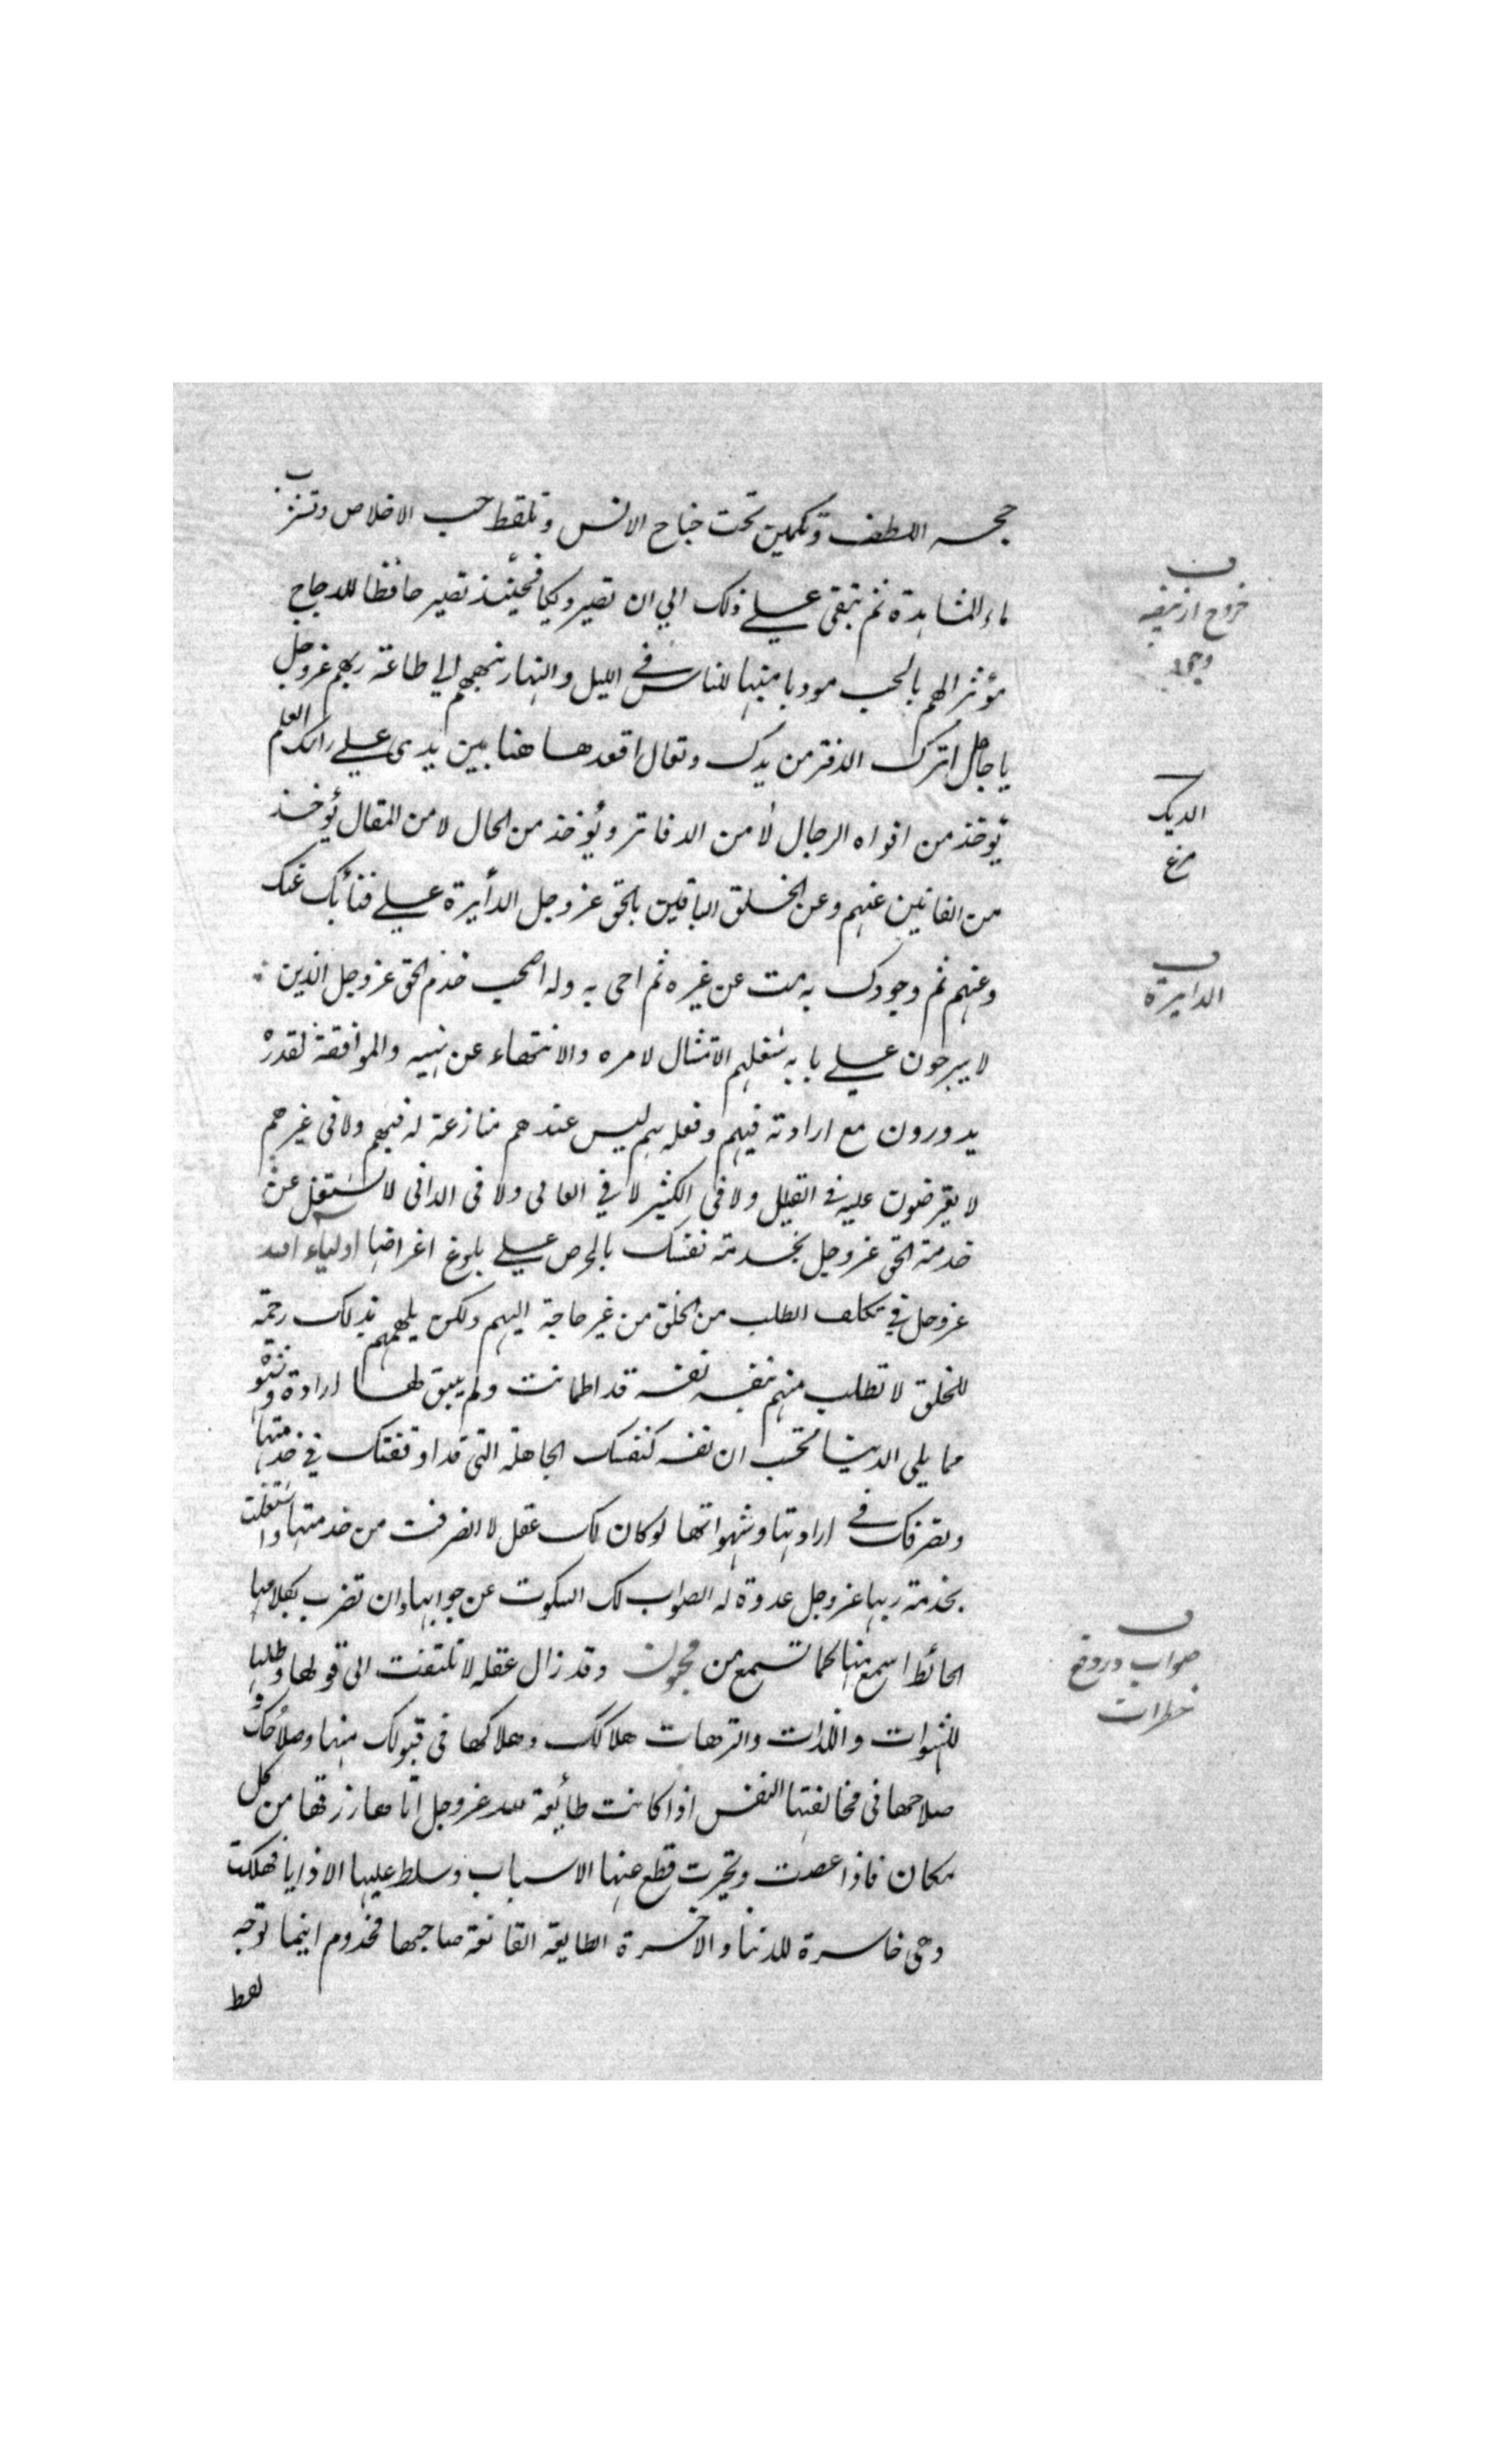 حجـر اللطف وتكمين تحت جناح الانس وتلقط حب الاخلاص وتشرب
ماء المشاهدة ثم تبقى على ذلك الى ان تصير ديكا فحينئذ تصير حافظا للدجاج
مؤثرا لهم بالحب مودبا منبها للناس في الليل والنهار تنبههم الى طاعة ربهم عزوجل
يا جاهل اترك الدفتر من يدك وتعال اقعد هاهنا بين يدى على راسك العلم
يؤخذ من افواه الرجال لا من الدفاتر ويؤخذ من الحال لا من المقال يؤخذ
من الفانين عنهم وعن الخلق الباقين بالحق عزوجل الدائرة على فنائك عنك
وعنهم ثم وجودك به مت عن غيره ثم احى به وله اصحب خدم الحق عزوجل الذين
لا يبرحون على بابه شغلهم الامتثال لامره والانتهاء عن نهيه والموافقة لقدره
يدورون مع ارادته فيهم وفعله بهم ليس عندهم منازعة له فيهم ولا فى غيرهم
لا يعترضون عليه فى القليل ولا فى الكثير لا في العالى ولا فى الدانى لا تشتغل عن
خدمة الحق عزوجل بخدمة نفسك بالحرص على بلوغ اغراضها اولياء الله
عزوجل في تكلف الطلب من الخلق من غير حاجة اليهم ولكن يلهمهم بذلك رحمة
للخلق لا تطلب منهم نفسه نفسه قد اطمانت ولم يبق لها ارادة وشهوة
مما يلى الدنيا تحسب ان نفسه كنفسك الجاهلة التى قد اوقفتك في خدمتها
وتصرفك في ارادتها وشهواتها لو كان لك عقل لانصرفت من خدمتها واشتغلت
بخدمة ربها عزوجل عدوة له الصواب لك السكوت عن جوابها وان تضرب بكلامها
الحائط اسمع منها كما تسمع من مجنون وقد زال عقله لا تلتفت الى قولها وطلبها
للشهوات واللذات والترهات هلاكك وهلاكها فى قبولك منها وصلاحك و
صلاحها فى مخالفتها النفس اذا كانت طائعة لله عزوجل اتاها رزقها من كل
مكان فاذا عصت وتجبرت قطع عنها الاسباب وسلط عليها الاذايا فهلكت
وهى خاسرة للدنيا والاخرة الطايعة القانعة صاحبها مخدوم اينما توجه
لقط
ف
خروج از بيضه
وجود
الديك
مرغ
ف
الدايرة
ف
صواب در دفع
خطرات